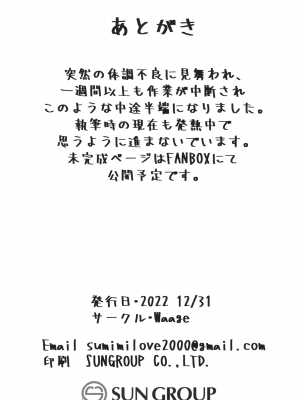 あとがき
突然の体調不良に見舞われ、
一週間以上も作業が中断され
このような中途半端になりました。
執筆時の現在も発熱中で
思うように進まないでいます。
未完成ページはFANBOXにて
公開予定です。
発行日・2022 12/31
サークル・Waage
Email sumimilove2000@gmail.com
印刷 SUNGROUP CO.,LTD.
SUN GROUP